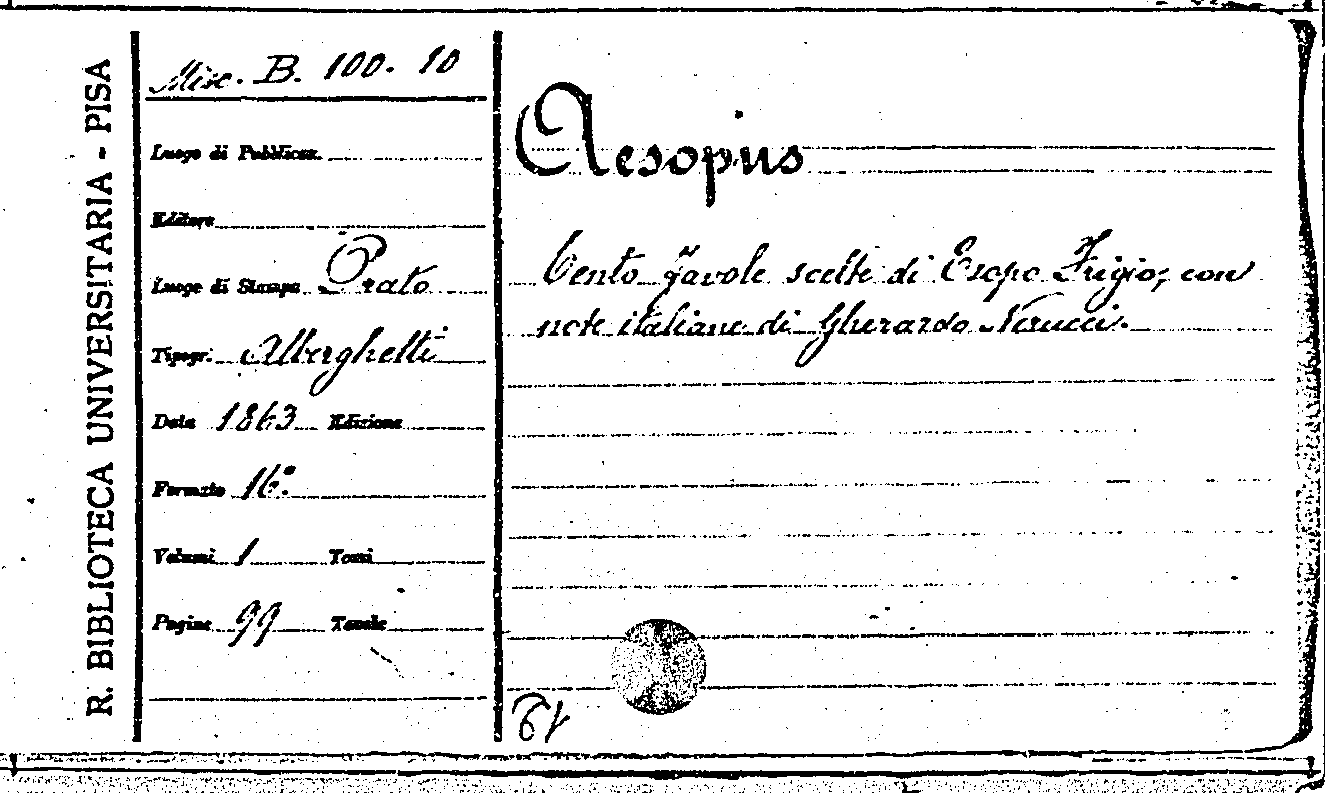 R. BIBLIOTECA UNIVERSITARIA - PISA
Misc. B. 100. 10
Luogo di Pubblicaz.
Editore
Luogo di Stampa Prato
Tipogr. Alberghetti
Data 1863 Edizione
Formato 16.°
Volumi 1 Tomi
Pagine 99 Tavole
Aesopus
Cento favole scelte di Esopo Frigio, con
note italiane di Gherardo Nerucci.